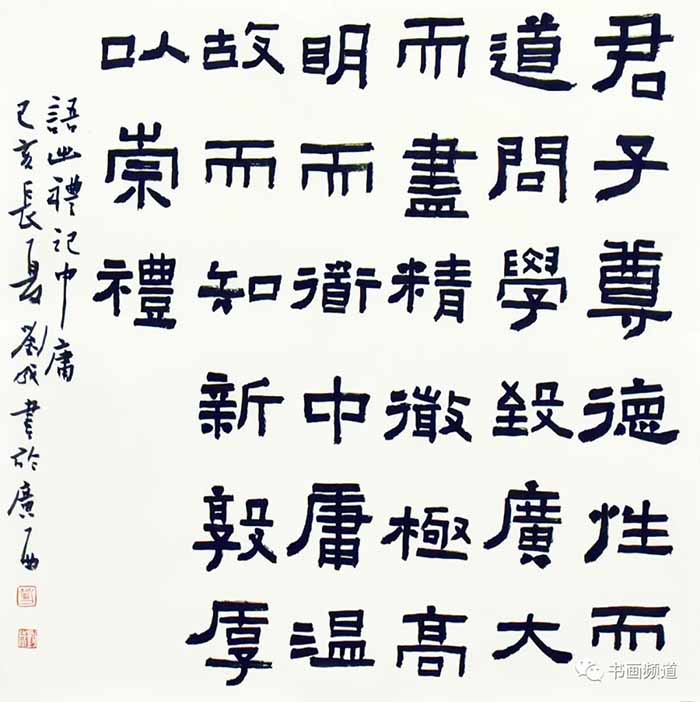 君子尊德性而
道問學致廣大
而盡精微極高
明而衜中庸温
故而知新敦厚
以崇禮
語出禮記中庸
己亥長夏劉成書於廣西
书画频道